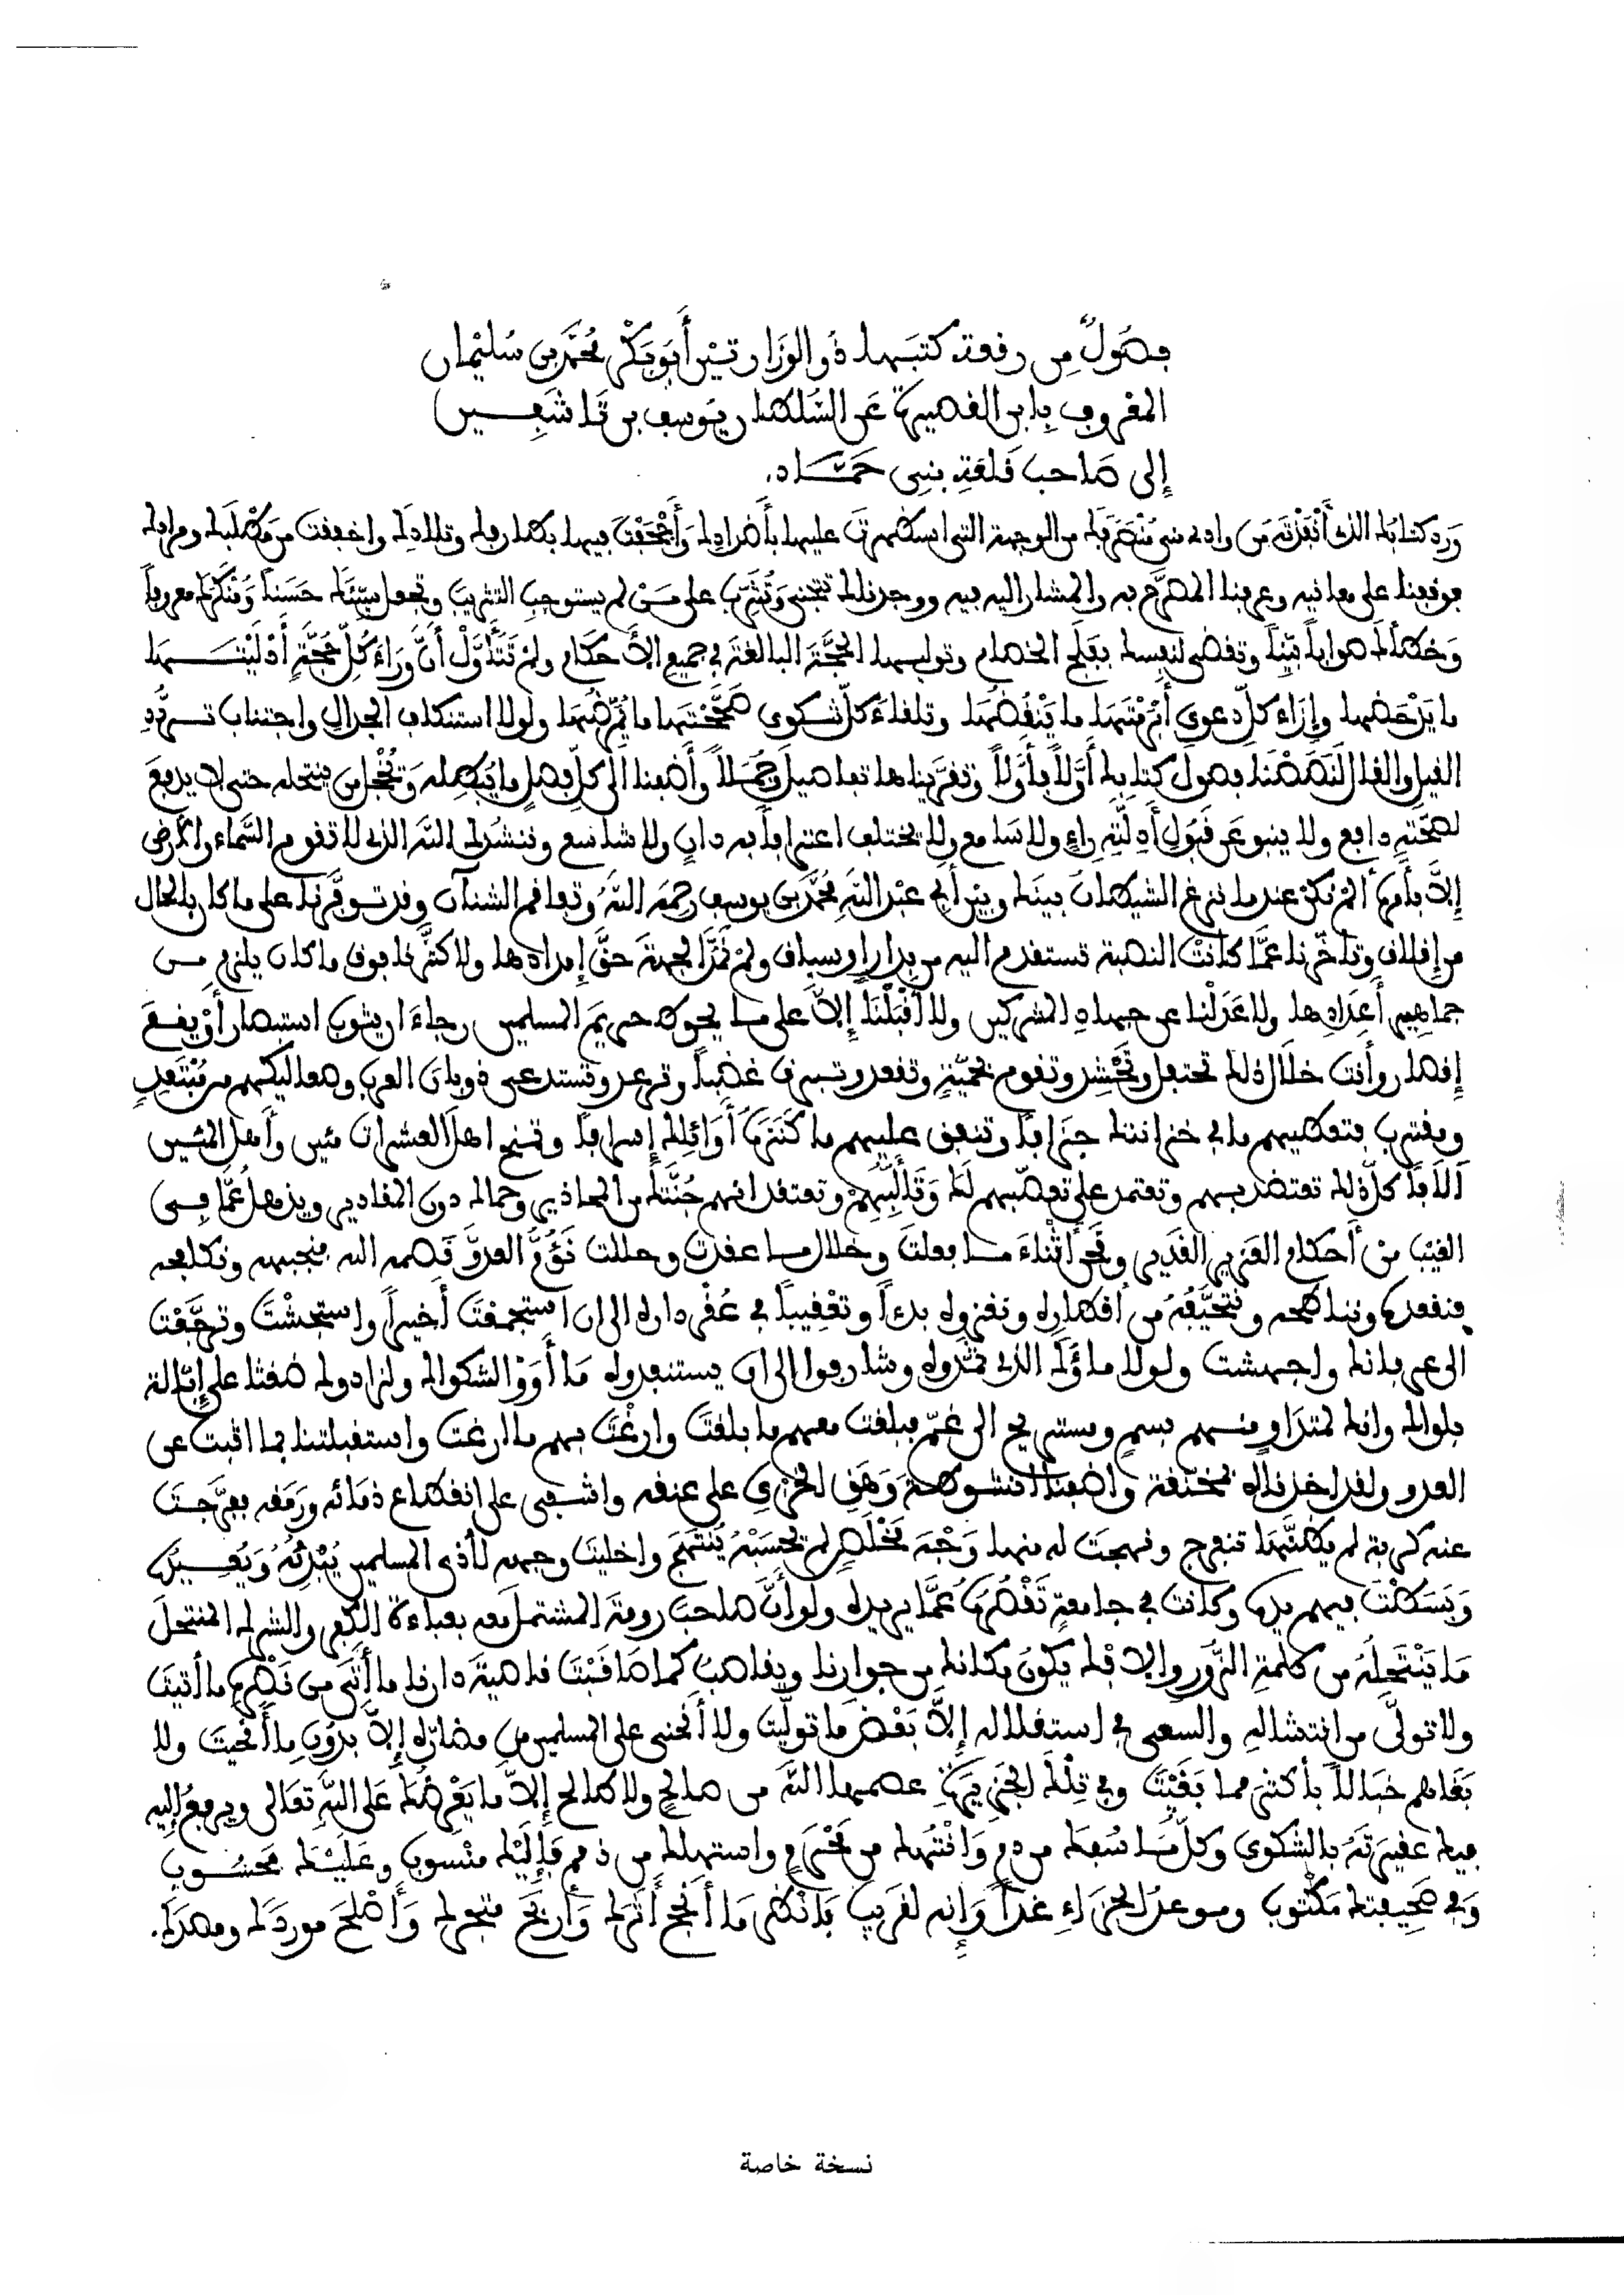 فصولٌ من رقعة كتبها ذو الوزارتين أبو بكر محمد بن سليمان
المعروف بابن القصيرة عن السلطان يوسف بن تاشفين
إلى صاحب قلعة بني حماد.
ورد كتابك الذي أنفذته من وادي منى منصرفك من الوجهة التي استظهرت عليها بأضدادك وأجحفت فيها بطارفك وتلادك واخفقت من مطلبك ومرادك
فوقفنا على معانيه وعرفنا المصرح به والمشار اليه فيه ووجدناك تتجنى وتثرب على من لم يستوجب التثريب وتجعل سيئك حسناً ونكرك معروفاً
وخطأك صواباً بيناً وتقضي لنفسك بفلج الخصام وتوليها الحجة البالغة في جميع الأحكام ولم تتأول أن وراء كل حجة أدليت بها
ما يدحضها وإزاء كل دعوى أبرمتها ما ينقضها وتلقاء كل شكوى صححتها ما يمرضها ولولا استنكاف الجدال واجتناب تردد
القيل والقال لنصصنا فصول كتابك أولاً فأولاً وتقريناها تفاصيل وجملاً وأضفنا الى كل فصل ما يبطله ويخجل من ينتحله حتى لا يدفع
لصحته دافع ولا ينبو عن قبول أدلته راءٍ ولا سامع ولا يختلف اعترافاً به دانٍ ولا شاسع وننشدك الله الذي لا تقوم السماء والأرض
إلا بأمره ألم نكن عندما نزغ الشيطان بينك وبين أبي عبد الله محمد بن يوسف رحمه الله وتفاقم الشنآن وقد توقرنا على ما كان بالحال
من إقلاق وتأخرنا عما كانت النصبة تستقدم اليه من بدار أو سباق ولم نمد الجهة حق إمدادها ولا كثرنا فوق ما كان يلزم من
جماهير أعدادها ولا عدلنا عن جهاد المشركين ولا أقبلنا إلا على ما يحوط حريم المسلمين رجاء أن يثوب استبصار أو يقع
إقصار وأنت خلال ذلك تحتفل وتحشد وتقوم بحمية وتقعد وتبرق غضباً وترعد وتستدعي ذوبان العرب وصعاليكهم من مبتعدٍ
ومقترب فتعطيهم ما في خزائنك جزافاً وتنفق عليهم ما كنزه أوائلك إسرافاً وتمنح اهل العشرات مئين وأهل المئين
آلافاً كل ذلك تعتضد بهم وتعتمد على تعصبهم لك وتألبهم وتعتقد انهم جنتك من المحاذير وحماك دون المقادير وتذهل عما في
الغيب من أحكام العزيز القدير ونحن أثناء ما فعلت وخلال ما عقدت وحللت نؤم العدو قصمه الله فنجبهه ونكافحه
فنقعده ونناطحه ونتحيفه من أقطاره ونغزوه بدءاً وتعقيباً في عقر داره الى ان استجمعت أخيراً واستجشت وترجعت
الى عرفانك واجهشت ولولا ماؤك الذي تمتروه وشارفوا الى ان يستنفدوه ما أووا لشكواك ولزادوك ضغثاً على إبالة
بلواك وانك لمتداوٍ منهم بسم ومستريح الى غم فبلغت معهم ما بلغت وأرغت بهم ما ارغت واستقبلتنا بما اثبت عن
العدو ولقد اخذنا له بمخنقه وأضفنا وهق الخزي على عنقه واشفى على انقطاع ذمائه ورمقه ففرجت
عنه كربة لم يظنها تنفرج ونهجت له منها وجه مخلص لم يحسبه ينتهج واخليت وجهه لأذى المسلمين يبدئه ويعيده
وبسطت فيهم يده وكانت في جامعةٍ تقصرها عما يريده ولو أن صاحب رومة المشتمل معه بعباءة الكفر والشرك المنتحل
ما ينتحله من كلمة الزور والإفك يكون بكانك من جوارنا ويصاقب كما صاقبت ناحية دارنا ما أتى من نصره ما أتيت
ولا تولى من انتشاله والسعي في استقلاله إلا بعض ما توليت ولا أنحى على المسلمين من مضاره إلا بدون ما أنحيت ولا
بغاهم خبالاً بأكثر مما بغيت وفي تلك الجزيرة عصمها الله من صالحٍ ولا طالح إلا ما يعرضك على الله تعالى ويرفع إليه
فيك عقيرته بالشكوى وكل ما سفك من دم وانتهك من محرم واستهلك من ذمم فإليك منسوب وعليك محسوب
وفي صحيفتك مكتوب وموعد الجزاء غداً وإنه لقريب فانظر ما أنجح أثرك وأربح متجرك وأصلح موردك ومصدرك.
نسخة خاصة